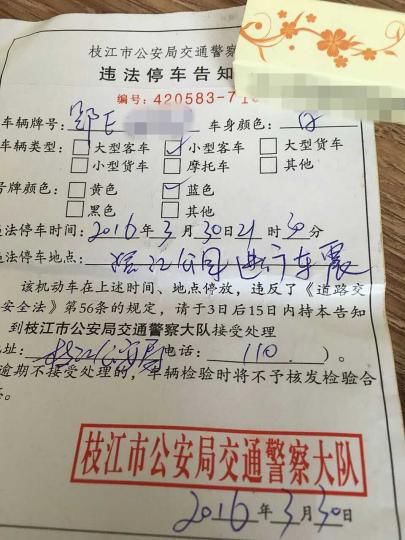 枝江市公安局交通警察
违法停车告知
编号:420583-71
车辆牌号:鄂E 车身颜色:白
车辆类型:□大型客车 ☑小型客车 □大型货车
□小型货车 □摩托车 □其他
号牌颜色:□黄色 ☑蓝色
□黑色 □其他
违法停车时间:2016年3月30日21时30分
违法停车地点:沿江公园进行车震
该机动车在上述时间、地点停放,违反了《道路交
安全法》第56条的规定,请于3日后15日内持本告知
到枝江市公安局交通警察大队接受处理
地址:枝江公安局电话:(110)。
逾期不接受处理的,车辆检验时将不予核发检验合
枝江市公安局交通警察大队
2016年3月30日